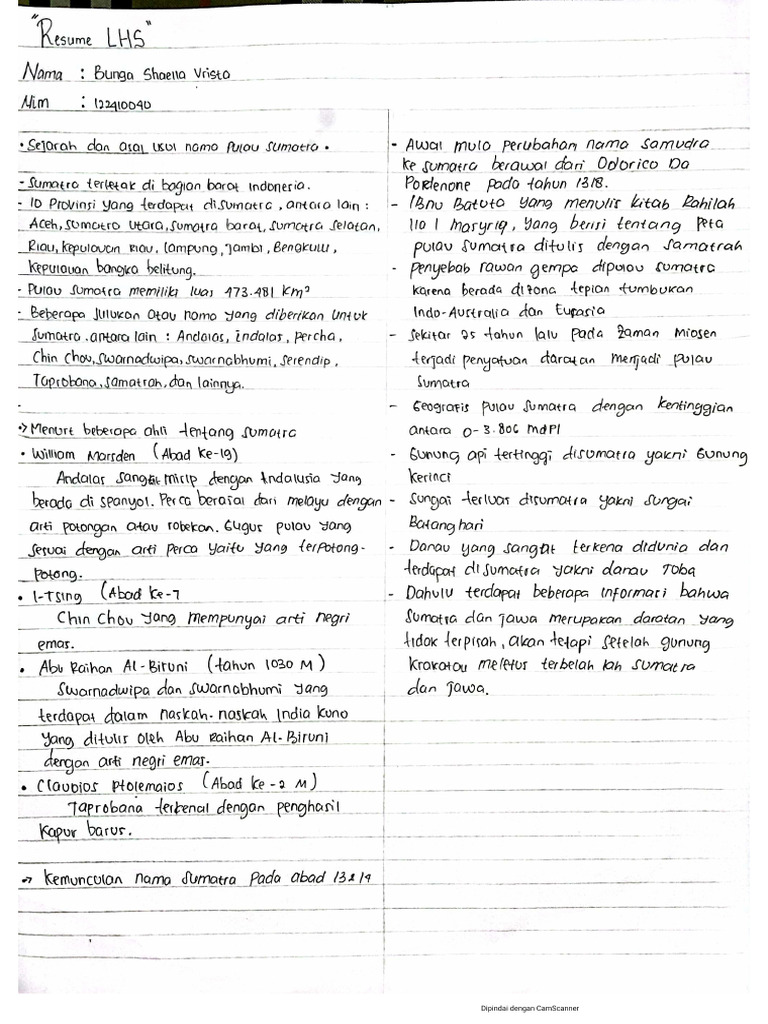 "Resume LHS"
Nama : Bunga Shaella Vrista
Nim : 122410040
• Sejarah dan asal usul nama Pulau Sumatra •
- Sumatra terletak di bagian barat Indonesia.
- 10 Provinsi yang terdapat disumatra, antara lain :
Aceh, sumatra Utara, sumatra barat, sumatra selatan,
Riau, kepulauan Riau, lampung, Jambi, Bengkulu,
kepulauan bangka belitung.
- Pulau sumatra memiliki luas 473.481 Km²
- Beberapa Julukan atau nama yang diberikan untuk
sumatra. antara lain : Andalas, indalas, percha,
Chin Chou, swarnadwipa, swarnabhumi, serendip,
Taprobana, samatrah, dan lainnya.
-> Menurt beberapa ahli tentang sumatra
• William Marsden (Abad Ke-19)
Andalas sangat mirip dengan Andalusia yang
berada di spanyol. Perca berasal dari melayu dengan
arti potongan atau robekan. Gugus pulau yang
sesuai dengan arti perca yaitu yang terpotong-
potong.
• I-Tsing (Abad ke-7
Chin Chou yang mempunyai arti negri
emas.
• Abu Raihan Al-Biruni (tahun 1030 M)
Swarnadwipa dan swarnabhumi yang
terdapat dalam naskah-naskah India kuno
yang ditulis oleh Abu Raihan Al-Biruni
dengan arti negri emas.
• Claudios Ptolemaios (Abad ke-2 M)
Taprobana terkenal dengan penghasil
kapur barus.
-> Kemunculan nama sumatra pada abad 13&14
- Awal mula perubahan nama samudra
ke sumatra berawal dari Odorico Da
Pordenone pada tahun 1318.
- IBnu Batuta yang menulis kitab Rahilah
ilal Masyriq, yang berisi tentang peta
pulau sumatra ditulis dengan samatrah
- Penyebab rawan gempa dipulau sumatra
karena berada dizona tepian tumbukan
Indo-Australia dan Eurasia
- Sekitar 25 tahun lalu pada Zaman Miosen
terjadi penyatuan daratan menjadi pulau
Sumatra
- Geografis pulau sumatra dengan kentinggian
antara 0-3.806 mdpl
- Gunung api tertinggi disumatra yakni Gunung
kerinci
- Sungai terluas disumatra yakni sungai
Batanghari
- Danau yang sangat terkena didunia dan
terdapat di sumatra yakni danau Toba
- Dahulu terdapat beberapa informari bahwa
Sumatra dan jawa merupakan daratan yang
tidak terpisah, akan tetapi setelah gunung
Krakatau meletus terbelah lah sumatra
dan jawa.
Dipindai dengan CamScanner